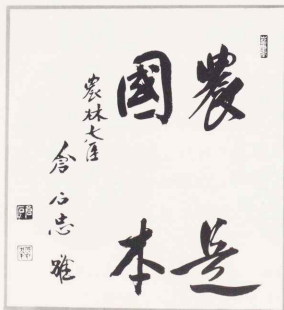 農是
國本
農林大臣
倉石忠雄